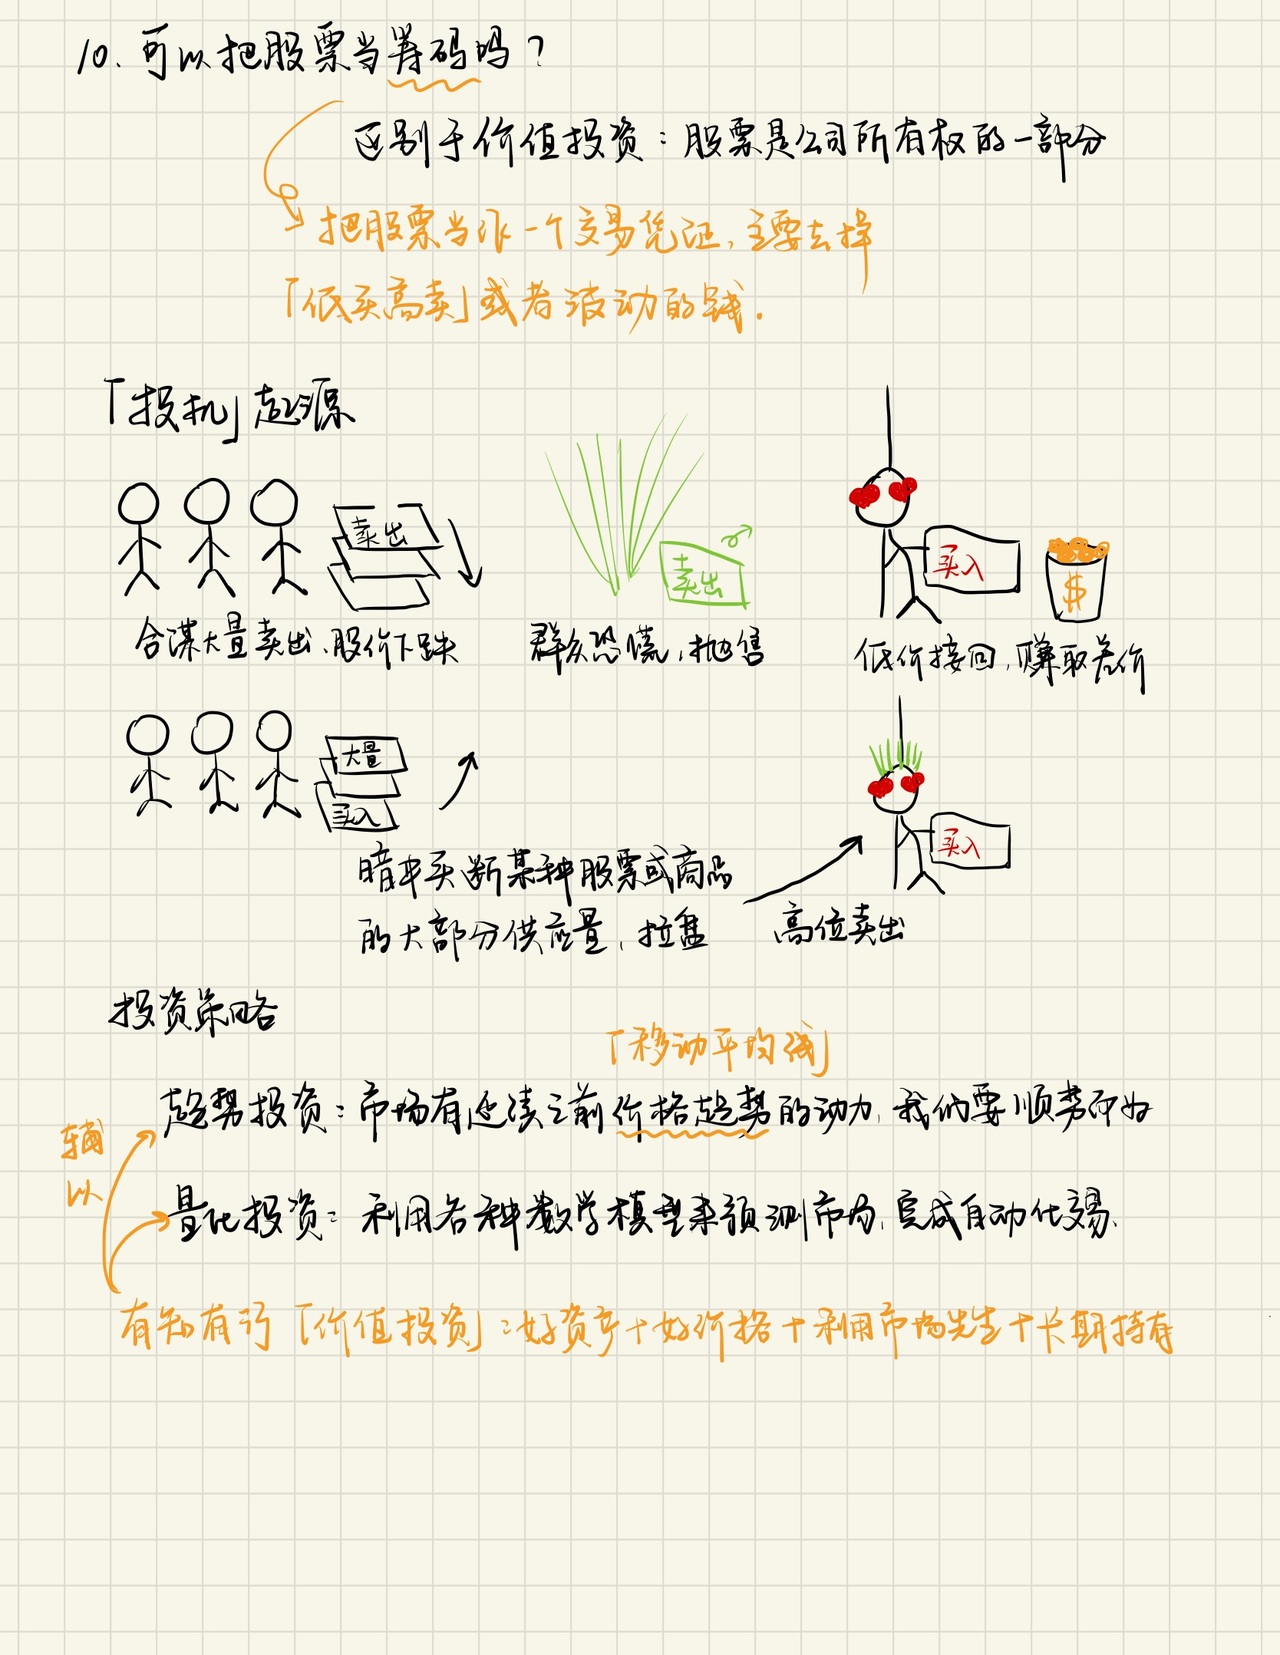 10. 可以把股票当筹码吗？
区别于价值投资：股票是公司所有权的一部分
把股票当作一个交易凭证,主要去挣
「低买高卖」或者波动的钱.
「投机」起源
卖出
卖出
买入
$
合谋大量卖出、股价下跌
群众恐慌,抛售
低价接回,赚取差价
大量
买入
买入
暗中买断某种股票或商品
的大部分供应量、拉盘
高位卖出
投资策略
「移动平均线」
趋势投资：市场有延续之前价格趋势的动力,我们要顺势而为
辅以
量化投资：利用各种数学模型来预测市场,完成自动化交易.
有知有行「价值投资」：好资产+好价格+利用市场先生+长期持有